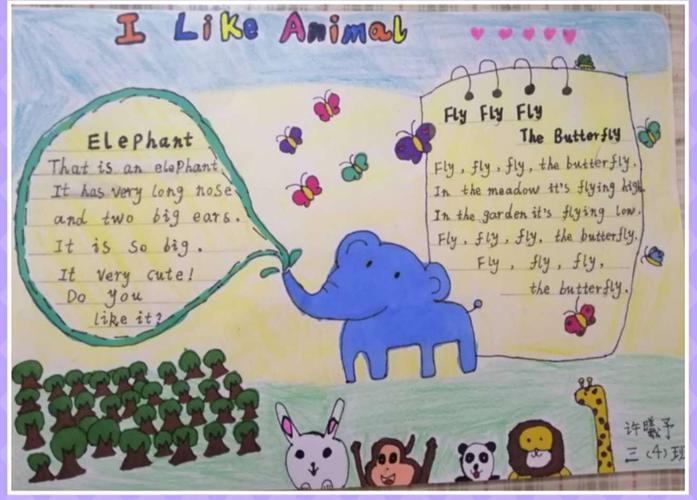 I Like Animal
Elephant
That is an elephant,
It has very long nose
and two big ears.
It is so big.
It very cute!
Do you
like it?
Fly Fly Fly
The Butterfly
Fly, fly, fly, the butterfly.
In the meadow it's flying high.
In the garden it's flying low.
Fly, fly, fly, the butterfly.
Fly, fly, fly,
the butterfly.
许曦予
三(4)班